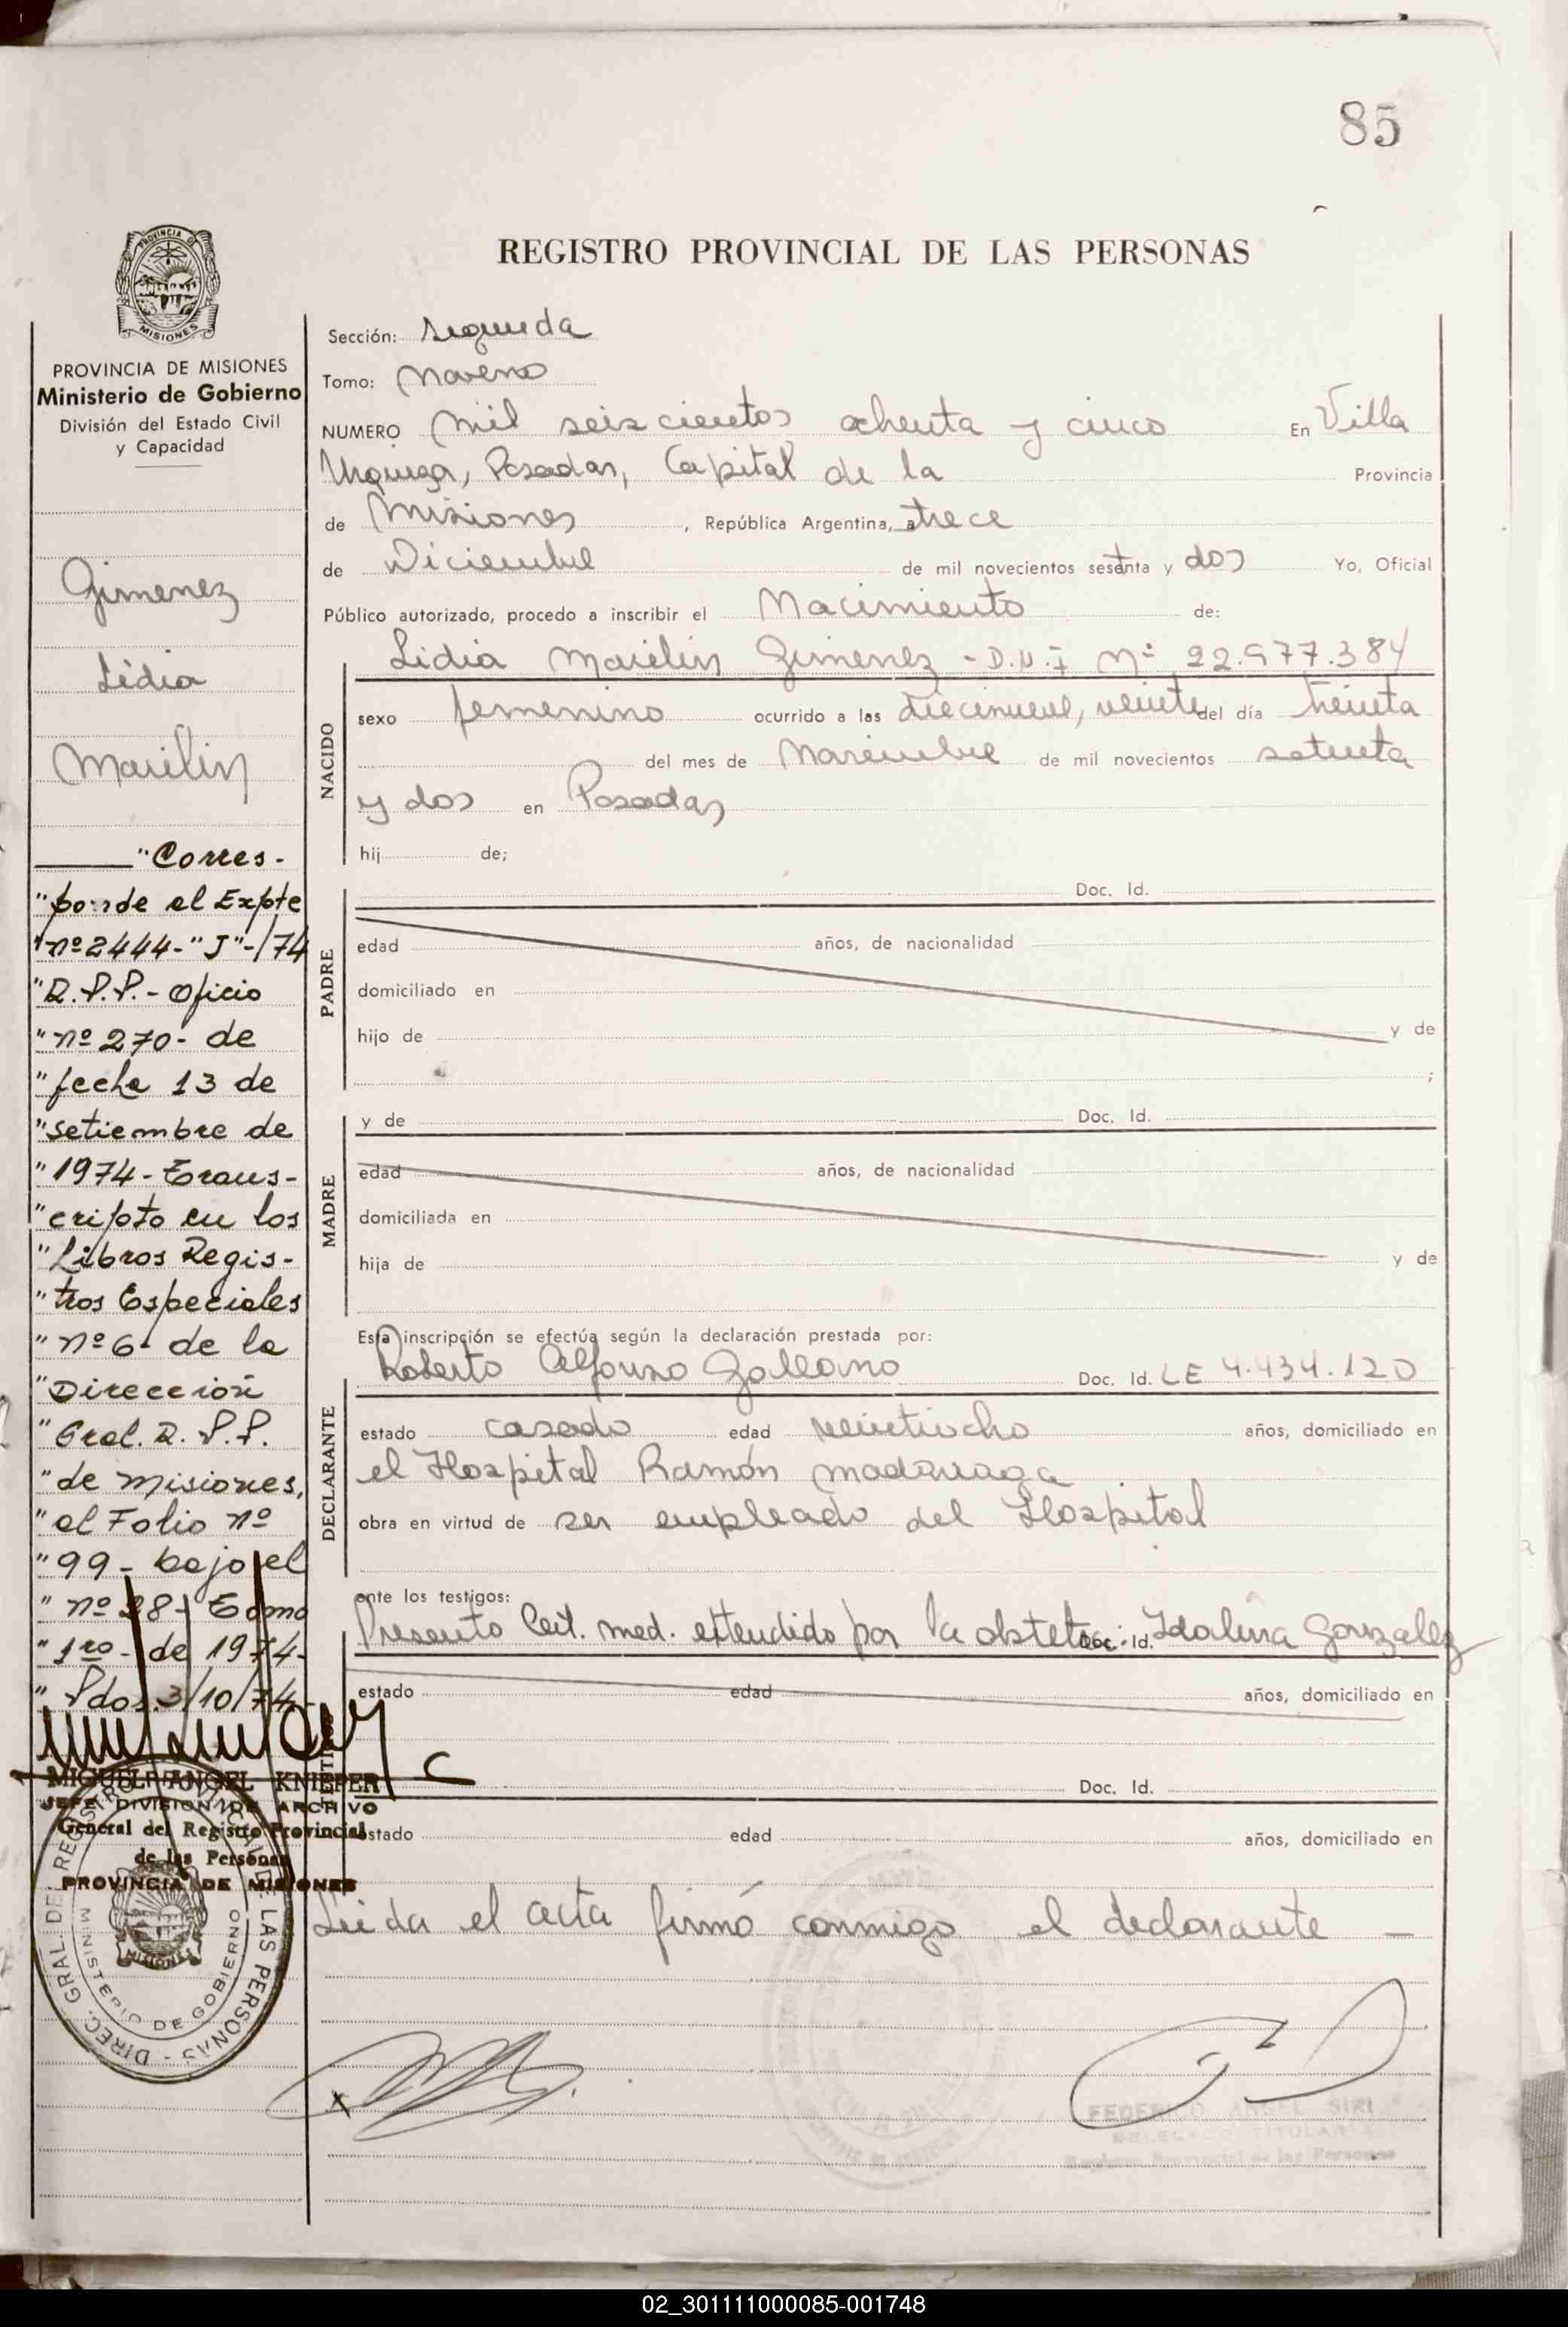 85
REGISTRO PROVINCIAL DE LAS PERSONAS
PROVINCIA DE MISIONES
PROVINCIA DE MISIONES
Ministerio de Gobierno
División del Estado Civil
y Capacidad
Gimenez
Lidia
Marilin
"Corres-
"ponde al Expte
"nº 2444-"J"-/74
"R.P.P.- Oficio
"nº 270- de
"fecha 13 de
"setiembre de
"1974- Trans-
"cripto en los
"Libros Regis-
"tros Especiales
"nº 6- de la
"Dirección
"Gral. R. P.P.
"de Misiones,
"al Folio nº
"99- bajo el
"nº 98- Tomo
"1ro- de 1974-
"Pdas. 3/10/74
MIGUEL ANGEL KNIEPER
JEFE DIVISION DE ARCHIVO
General del Registro Provincial
de las Personas
PROVINCIA DE MISIONES
DIREC. GRAL. DEL REGISTRO PROVINCIAL DE LAS PERSONAS -
MINISTERIO DE GOBIERNO
MISIONES
Sección: segunda
Tomo: Noveno
NUMERO Mil seiscientos ochenta y cinco En Villa
Urquiza, Posadas, Capital de la Provincia
de Misiones, República Argentina, a trece
de Diciembre de mil novecientos sesenta y dos Yo, Oficial
Público autorizado, procedo a inscribir el Nacimiento de:
Lidia Marilin Gimenez - D.N.I Nº 22.977.384
NACIDO
sexo femenino ocurrido a las diecinueve, veinte del día treinta
del mes de Noviembre de mil novecientos setenta
y dos en Posadas
hij de;
Doc. Id.
PADRE
edad años, de nacionalidad
domiciliado en
hijo de y de
;
MADRE
y de Doc. Id.
edad años, de nacionalidad
domiciliada en
hija de y de
Esta inscripción se efectúa según la declaración prestada por:
Roberto Alfonso Gallano Doc. Id. LE 4.434.120
DECLARANTE
estado casado edad veintiocho años, domiciliado en
el Hospital Ramón Madariaga
obra en virtud de ser empleado del Hospital
ante los testigos:
Presento Cert. med. extendido por la obstetra: Doc. Id. Idalina Gonzalez
estado edad años, domiciliado en
Doc. Id.
estado edad años, domiciliado en
Leida el acta firmó conmigo el declarante —
FEDERICO ANGEL SIRI
DELEGADO TITULAR
Registro Provincial de las Personas
02_301111000085-001748